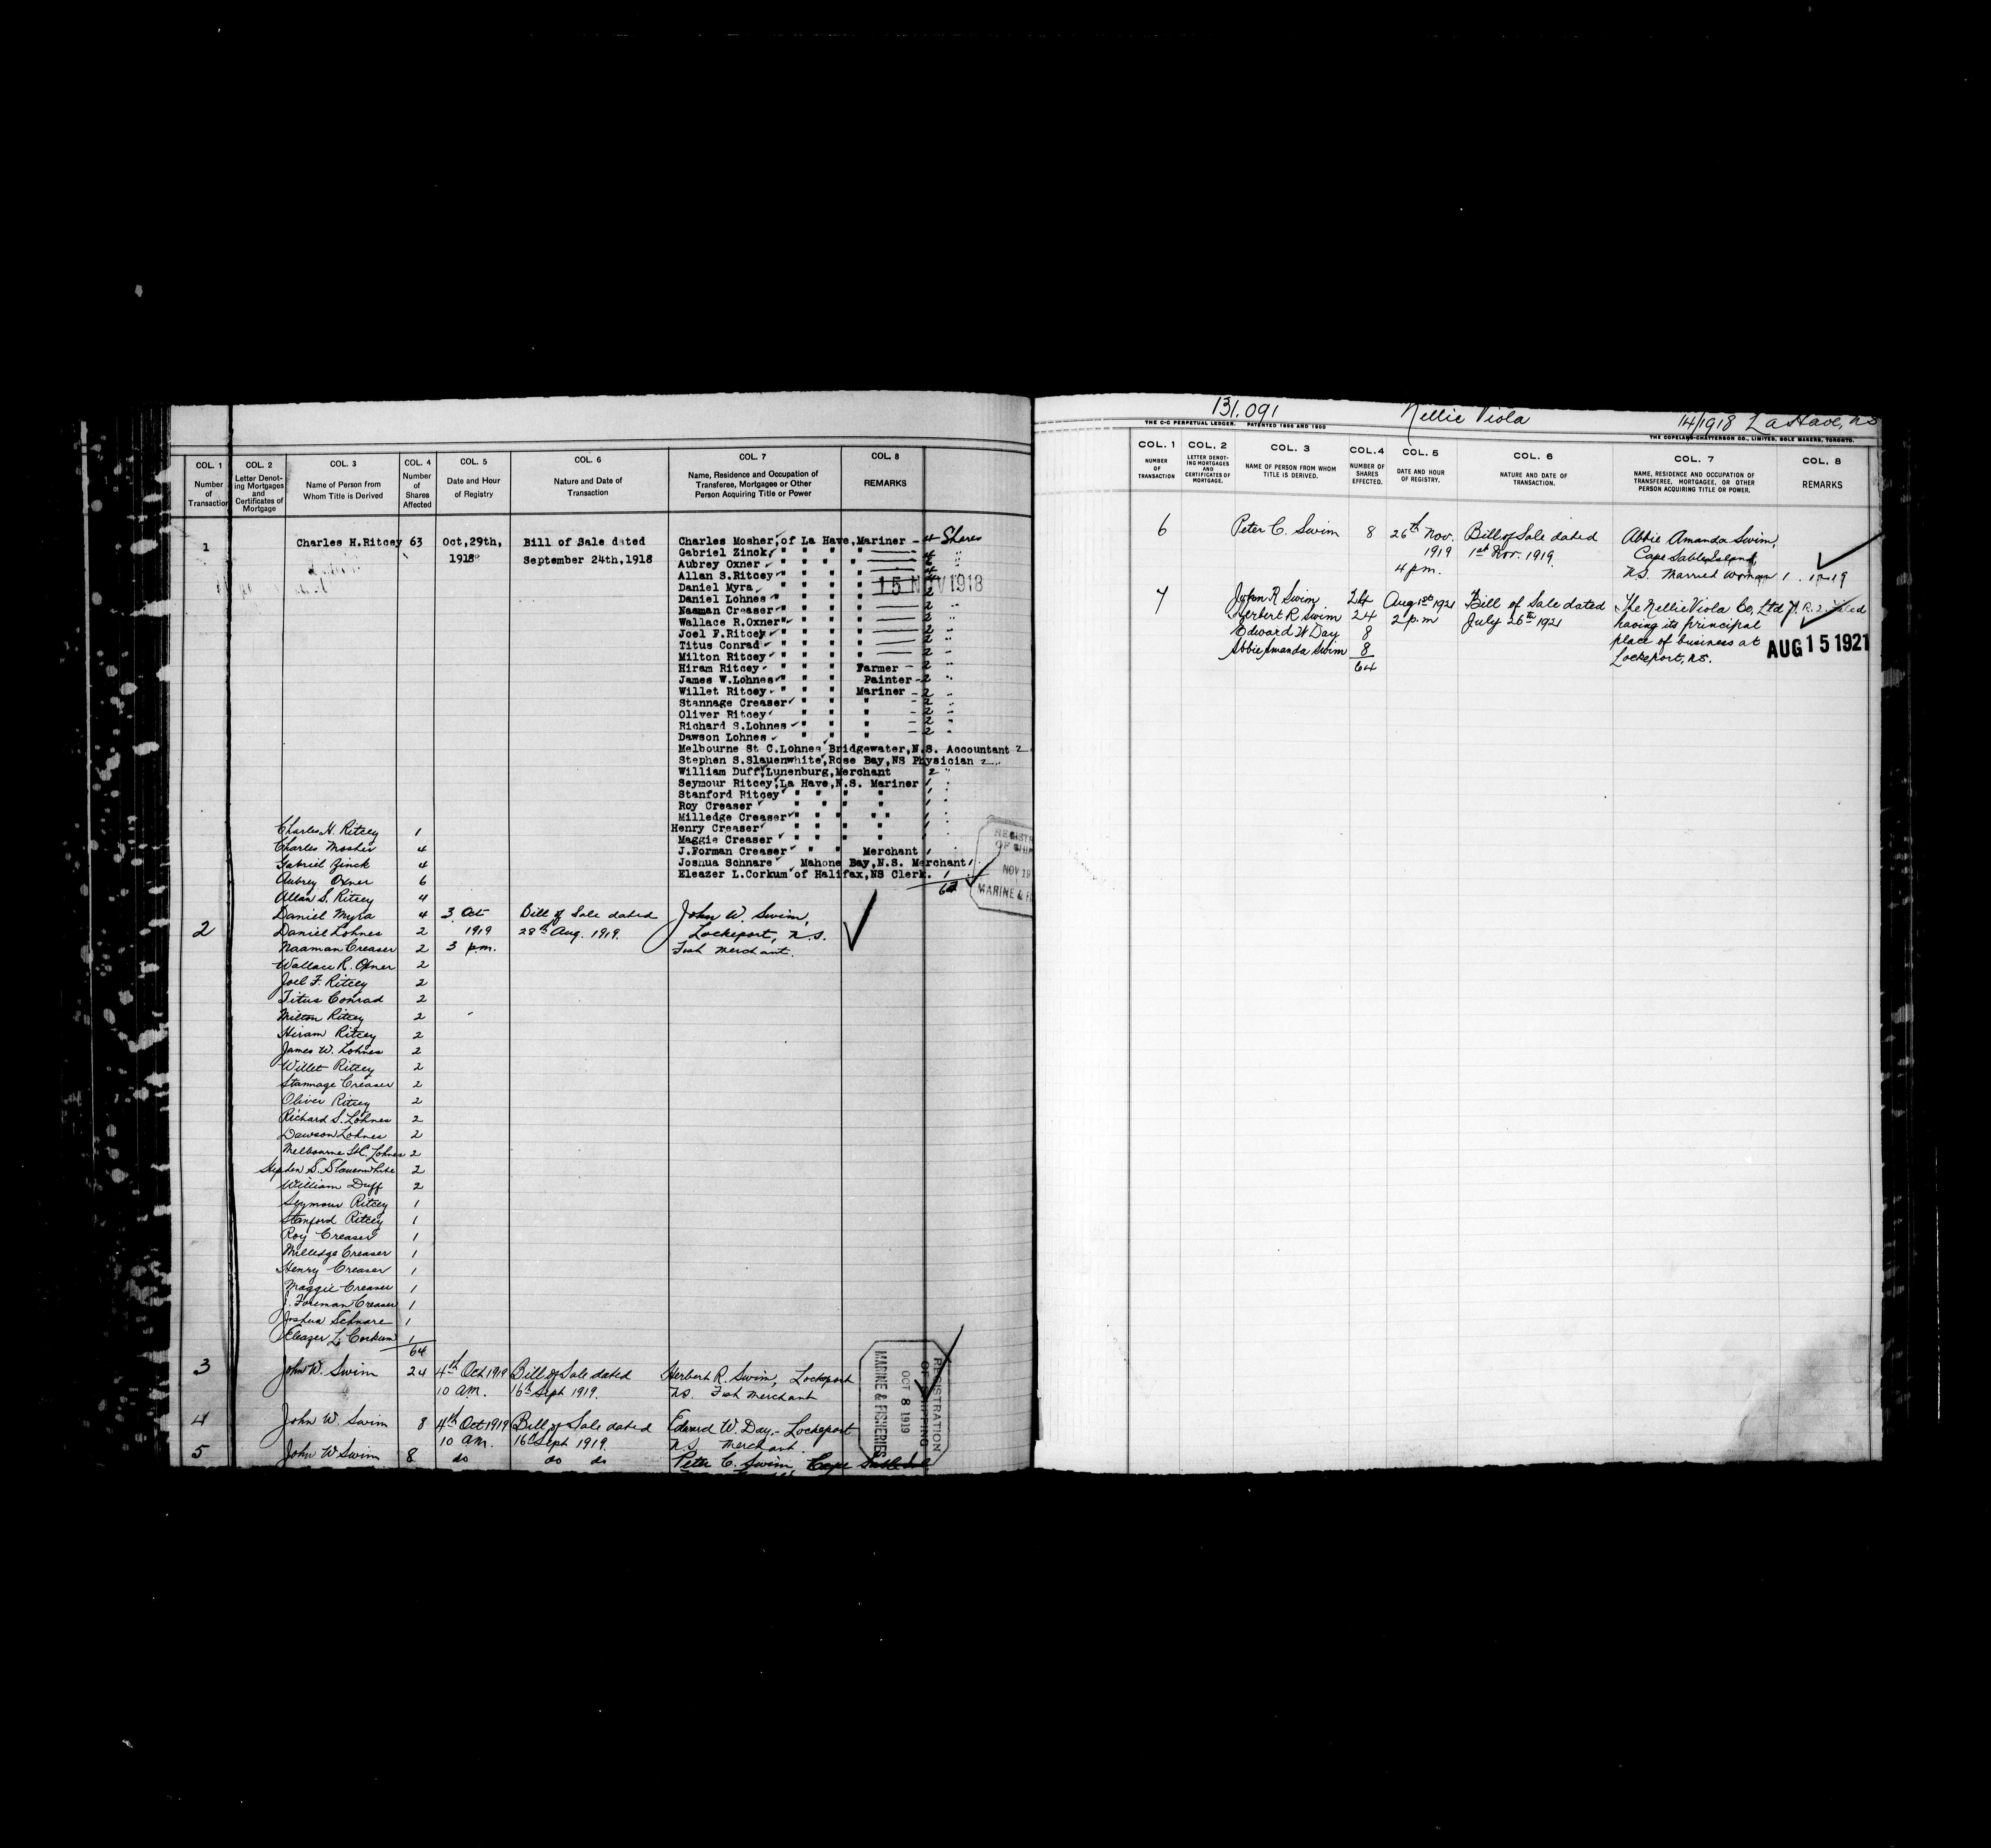 COL. 1 Number of Transaction
COL. 2 Letter Denoting Mortgages and Certificates of Mortgage
COL. 3 Name of Person from Whom Title is Derived
COL. 4 Number of Shares Affected
COL. 5 Date and Hour of Registry
COL. 6 Nature and Date of Transaction
COL. 7 Name, Residence and Occupation of Transferee, Mortgagee or Other Person Acquiring Title or Power
COL. 8 REMARKS
1 Charles H.Ritcey 63 Oct,29th, Bill of Sale dated Charles Mosher,of La Have,Mariner - 4 Shares
1918 September 24th,1918 Gabriel Zinck " " " " 4 "
Aubrey Oxner " " " "
Allan S.Ritcey " " " " 4
15 NOV 1918
Daniel Myra " " "
Daniel Lohnes " " " " 2
Naaman Creaser " " " " 2
Wallace R.Oxner " " " " 2
Joel F.Ritcey " " " " 2
Titus Conrad " " " " 2
Milton Ritcey " " " " 2
Hiram Ritcey " " " Farmer - 2 "
James W.Lohnes " " " Painter - 2 "
Willet Ritcey " " " Mariner - 2 "
Stannage Creaser " " " " - 2 "
Oliver Ritcey " " " " - 2 "
Richard S.Lohnes " " " " - 2 "
Dawson Lohnes " " " " - 2 "
Melbourne St C.Lohnes Bridgewater,N.S. Accountant 2
Stephen S.Slauenwhite,Rose Bay,NS Physician 2
William Duff,Lunenburg,Merchant 2 "
Seymour Ritcey,La Have,N.S. Mariner 1
Stanford Ritcey " " " " 1
Roy Creaser " " " " 1
Milledge Creaser " " " " 1
Henry Creaser " " " " 1
Maggie Creaser " " " "
J.Forman Creaser " " Merchant 1
Joshua Schnare Mahone Bay,N.S. Merchant 1
Eleazer L.Corkum of Halifax,NS Clerk. 1
Charles H. Ritcey 1
Charles Mosher 4
Gabriel Zinck 4
Aubrey Oxner 6
Allan S. Ritcey 4
Daniel Myra 4 3 Oct Bill of Sale dated John W. Swim,
2 Daniel Lohnes 2 1919 28th Aug. 1919. Lockeport, N.S.
Naaman Creaser 2 3 pm. Fish Merchant.
Wallace R. Oxner 2
Joel F. Ritcey 2
Titus Conrad 2
Milton Ritcey 2
Hiram Ritcey 2
James W. Lohnes 2
Willet Ritcey 2
Stannage Creaser 2
Oliver Ritcey 2
Richard S. Lohnes 2
Dawson Lohnes 2
Melbourne St C. Lohnes 2
Stephen S. Slauenwhite 2
William Duff 2
Seymour Ritcey 1
Stanford Ritcey 1
Roy Creaser 1
Milledge Creaser 1
Henry Creaser 1
Maggie Creaser 1
J. Foreman Creaser 1
Joshua Schnare 1
Eleazer L. Corkum 1
64
3 John W. Swim 24 4th Oct 1919 Bill of Sale dated Herbert R. Swim, Lockeport
10 am. 16th Sept 1919. N.S. Fish Merchant
4 John W. Swim 8 4th Oct 1919 Bill of Sale dated Edward W. Day, - Lockeport
10 am. 16th Sept 1919. N.S. Merchant.
5 John W Swim 8 do do do Peter C. Swim, Cape Sable Isl
REGISTRATION
OF SHIPPING
OCT 8 1919
MARINE & FISHERIES
131,091 Nellie Viola 14/1918 La Have, NS
THE C-C PERPETUAL LEDGER. PATENTED 1898 AND 1900 THE COPELAND-CHATTERSON CO., LIMITED, SOLE MAKERS, TORONTO.
COL. 1 NUMBER OF TRANSACTION
COL. 2 LETTER DENOTING MORTGAGES AND CERTIFICATES OF MORTGAGE.
COL. 3 NAME OF PERSON FROM WHOM TITLE IS DERIVED.
COL. 4 NUMBER OF SHARES EFFECTED.
COL. 5 DATE AND HOUR OF REGISTRY.
COL. 6 NATURE AND DATE OF TRANSACTION.
COL. 7 NAME, RESIDENCE AND OCCUPATION OF TRANSFEREE, MORTGAGEE, OR OTHER PERSON ACQUIRING TITLE OR POWER.
COL. 8 REMARKS
6 Peter C. Swim 8 26th Nov. Bill of Sale dated Abbie Amanda Swim,
1919 1st Nov. 1919. Cape Sable Island,
4 pm. N.S. Married Woman
7 John R Swim 24 Aug 1st 1921 Bill of Sale dated The Nellie Viola Co, Ltd
Herbert R Swim 24 2 p.m July 26th 1921 having its principal
Edward W Day 8 place of business at
Abbie Amanda Swim 8 Lockeport, N.S.
64
AUG 15 1921